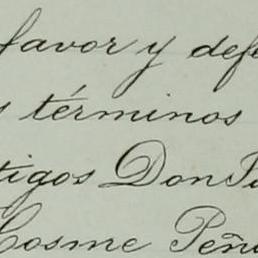 favor y def
s términos
tigos Don P
Cosme Peñ